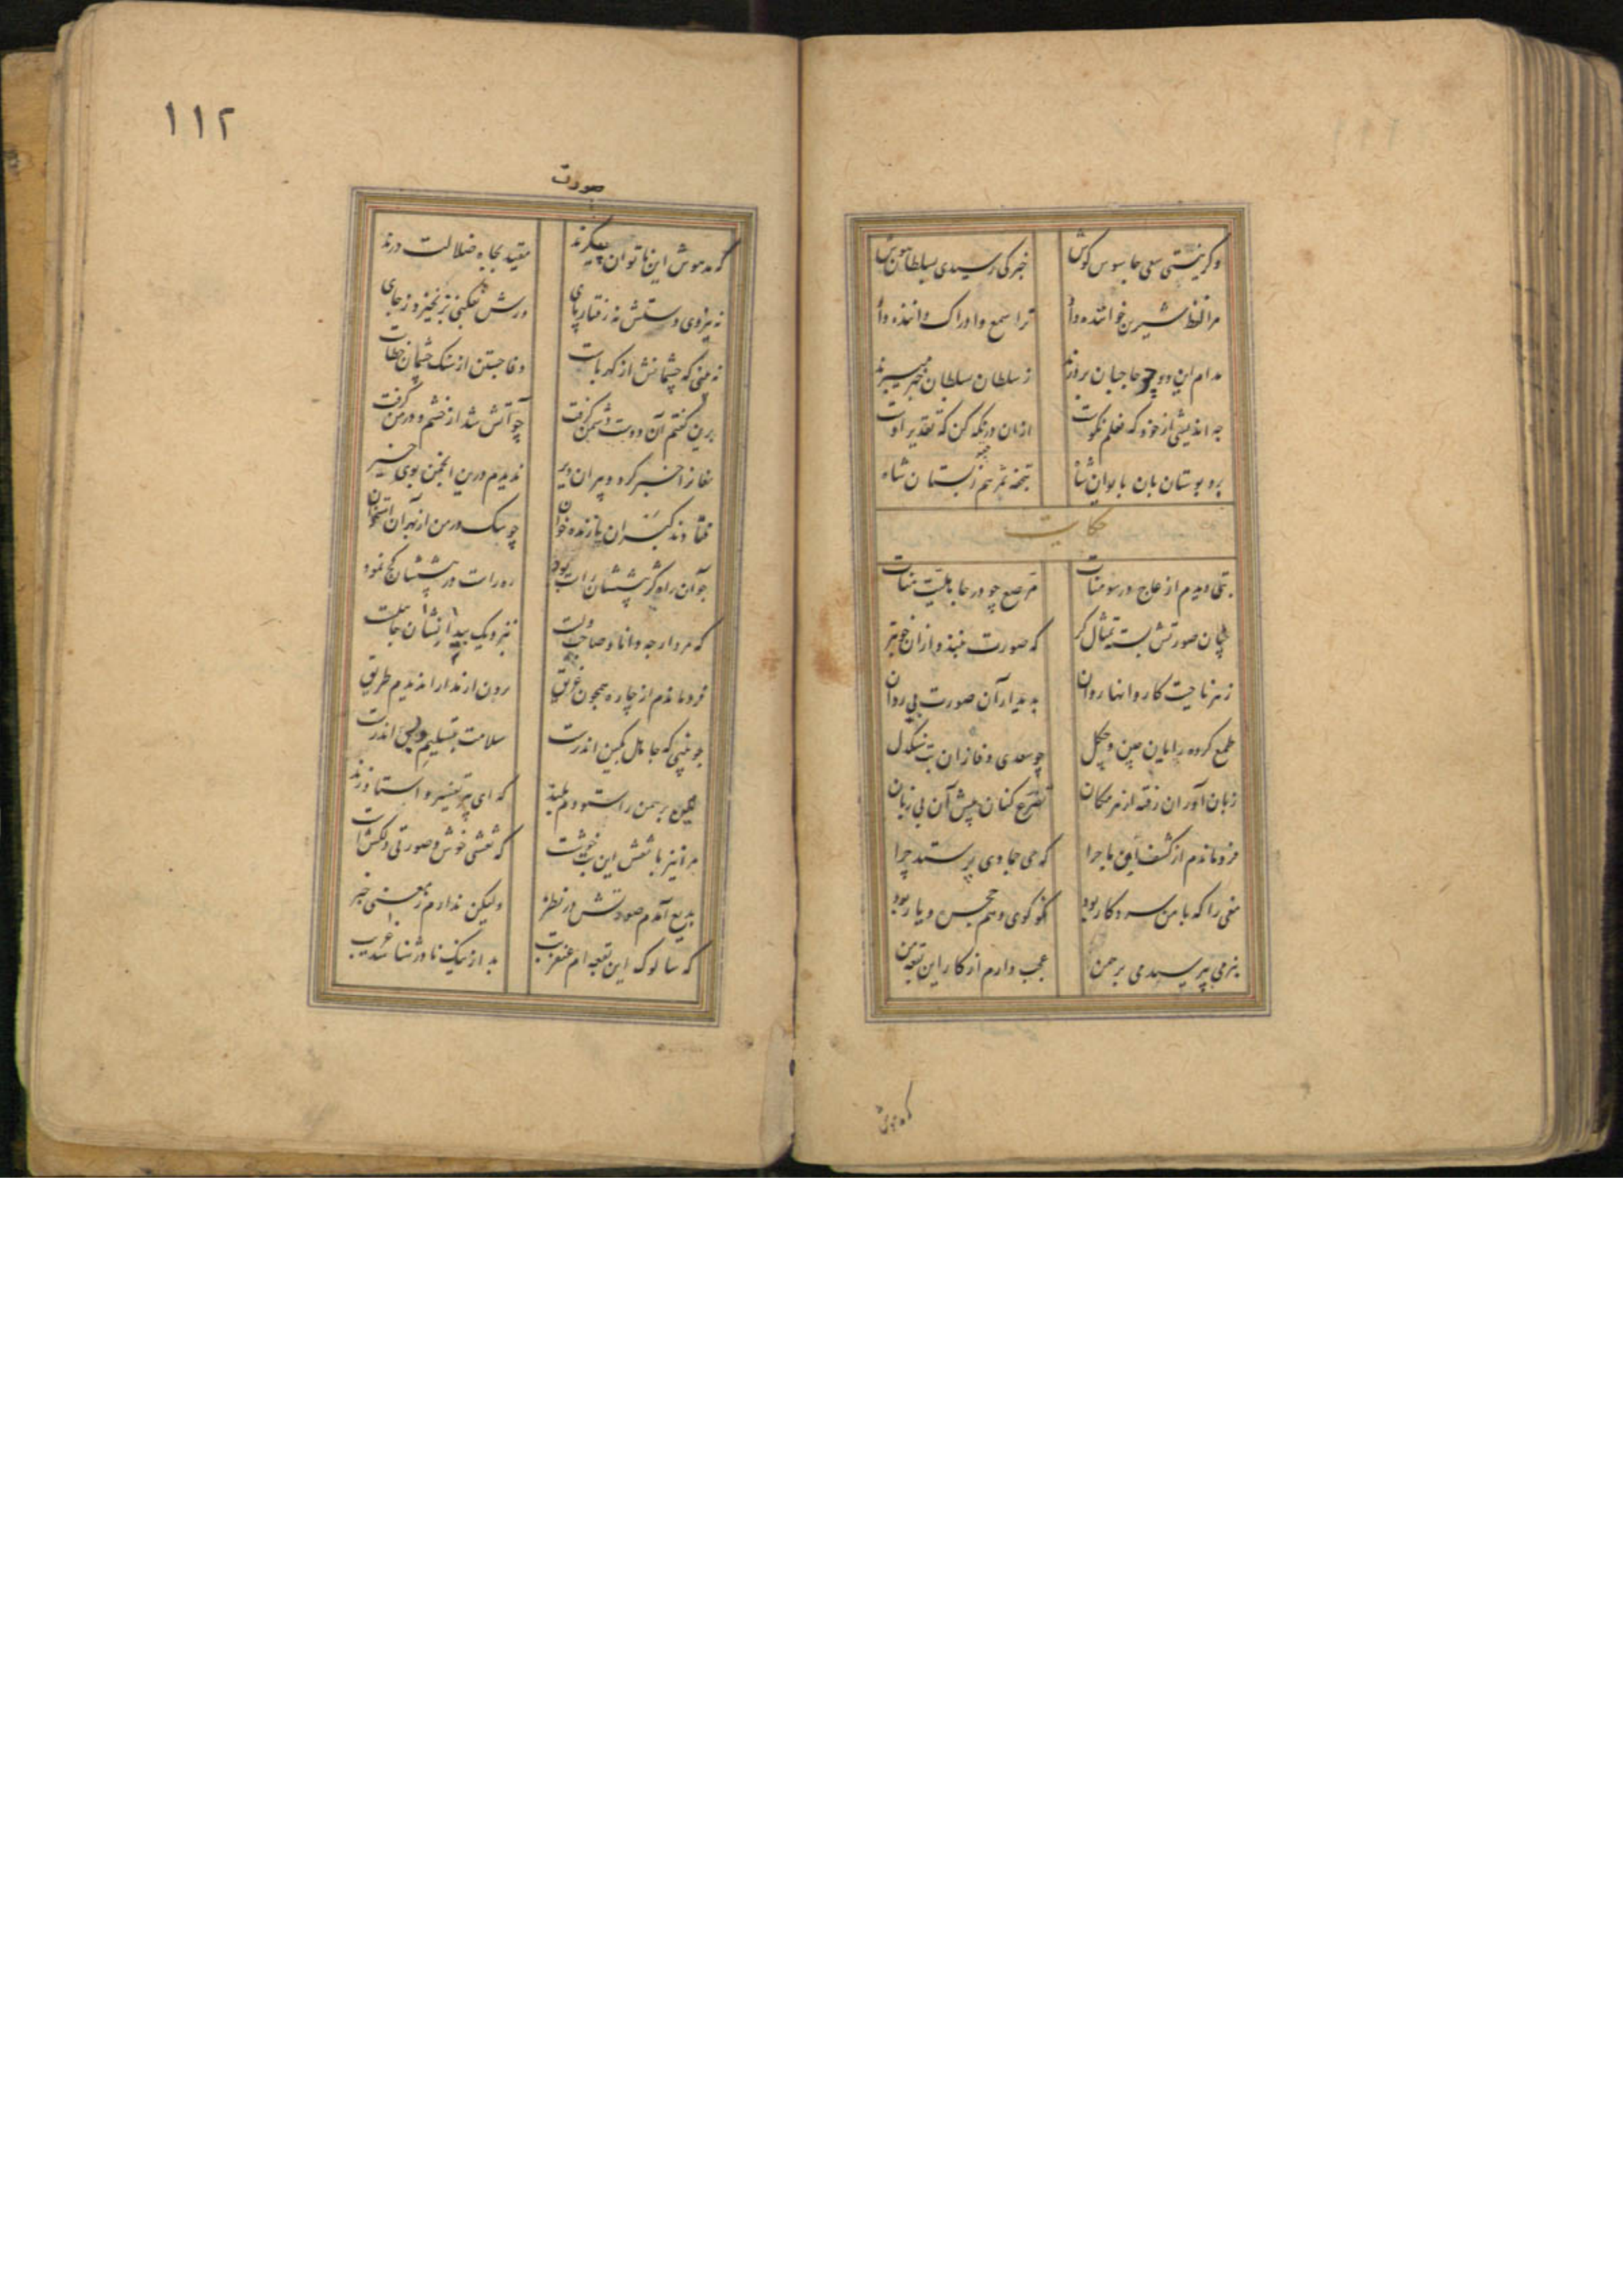 وکر نیستی سعی جاسوس کوش خبر کی رسیدی بسلطان هوش
مرا لفظ شیرین خواننده داد ترا سمع و ادراک داننده داد
مدام این دو چو حاجبان بر درند ز سلطان بسلطان خبر میبرند
چه اندیشی از خود که فعلم نکوست ازان در نکه کن که تقدیر اوست
برد بوستان بان بایوان شاه بتحفه ثمر هم ز بستان شاه
حکایت
بتی دیدم از عاج در سومنات مرصع چو در جاهلیت منات
چنان صورتش بسته تمثال کر که صورت نبندد ازان خوبتر
ز هر ناحیت کاروانها روان بدیدار آن صورت بی روان
طمع کرده رایان چین و چکل چو سعدی وفا زان بت سنکدل
زبان آوران رفته از هر مکان تضرع کنان پیش آن بی زبان
فرو ماندم از کشف این ماجرا که حی جمادی پرستد چرا
مغی را که با من سر و کار بود نکو کوی و هم حجره و یار بود
بنرمی بپرسیدم ای برهمن عجب دارم از کار این بقعه من
که مدهوش
۱۱۲
صورت
که مدهوش این ناتوان پیکرند مقید بچاه ضلالت درند
نه نیروی دستش نه رفتار پای ورش بفکنی بر نخیزد ز جای
نه بینی که چشمانش از کهرباست وفا جستن از سنک چشمان خطاست
برین کفتم آن دوست دشمن کرفت چو آتش شد از خشم و در من کرفت
مغانرا خبر کرد و پیران دیر ندیدم درین انجمن بوی خیر
فتادند کبران پازند خوان چو سک در من از بهر آن استخوان
چو آن راه کژ پیششان راست بود ره راست در پیششان کج نمود
که مرد ارچه دانا و صاحب دلست بنزدیک بیدانشان جاهلست
فرو ماندم از چاره همچون غریق برون از مدارا ندیدم طریق
چو بینی که جاهل بکین اندرست سلامت بتسلیم و لین اندرست
مهین برهمن را ستودم بلند که ای پیر تفسیر و استا و زند
مرا نیز با نقش این بت خوشست که نقشی خوش و صورتی دلکشست
بدیع آیدم صورتش در نظر ولیکن ندارم ز معنی خبر
که سالوک این بقعه ام عنقریب بد از نیک نادر شناسد غریب